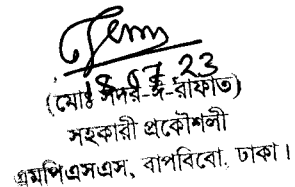 18.07.23
(মোঃ সদর-ঈ-রাফাত)
সহকারী প্রকৌশলী
এমপিএসএস, বাপবিবো, ঢাকা।